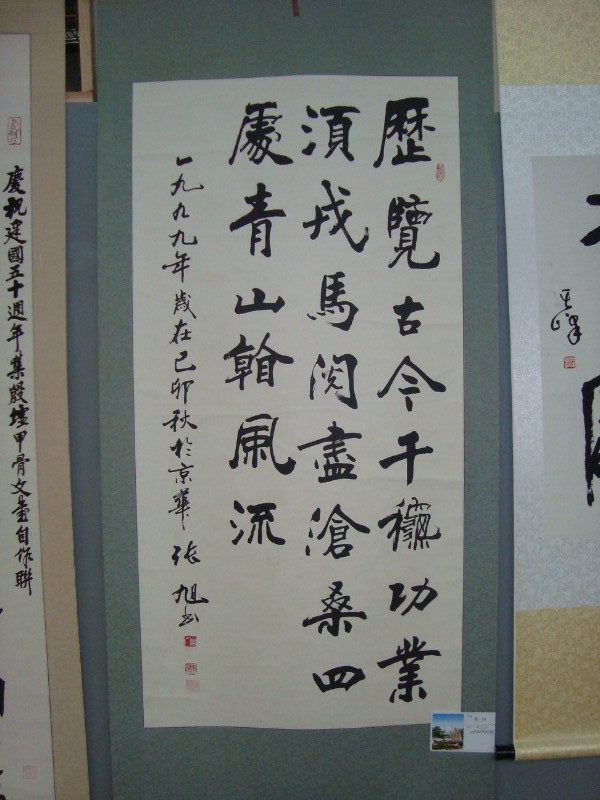 歷覽古今千龝功業
湏戎馬閱盡滄桑四
處青山翰風流
一九九九年歲在己卯秋於京華 張旭书
慶祝建國五十週年集殷墟甲骨文自作聯